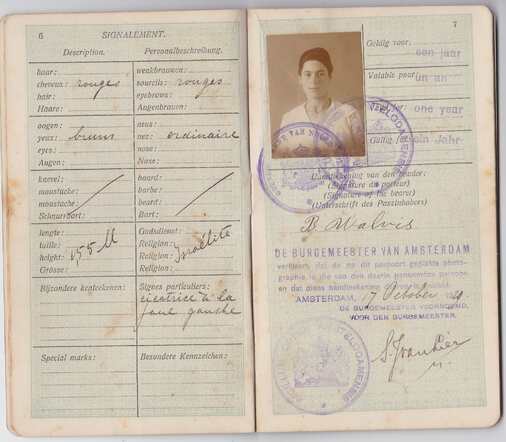 6 SIGNALEMENT.
Description. Persoonsbeschrijving.
haar: wenkbrauwen:
cheveux: rouges sourcils: rouges
hair: eyebrows:
Haare: Augenbrauen:
oogen: neus:
yeux: bruns nez: ordinaire
eyes: nose:
Augen: Nase:
knevel: baard:
moustache: barbe:
moustache: beard:
Schnurrbart: Bart:
lengte: Godsdienst:
taille: Religion:
height: 1,55 M Religion: Israélite
Grösse: Religion:
Bijzondere kenteekenen: Signes particuliers:
cicatrice à la
joue gauche
Special marks: Besondere Kennzeichen:
7
Geldig voor: een jaar
Valable pour: un an
one year
Gültig für: ein Jahr
Handteekening van den houder:
(Signature du porteur)
(Signature of the bearer)
(Unterschrift des Passinhabers)
B Walvis
DE BURGEMEESTER VAN AMSTERDAM
verklaart, dat de op dit paspoort geplakte photo-
graphie is die van den daarin genoemden persoon
en dat diens handteekening
AMSTERDAM, 17 October
DE BURGEMEESTER VOORNOEMD,
VOOR DEN BURGEMEESTER,